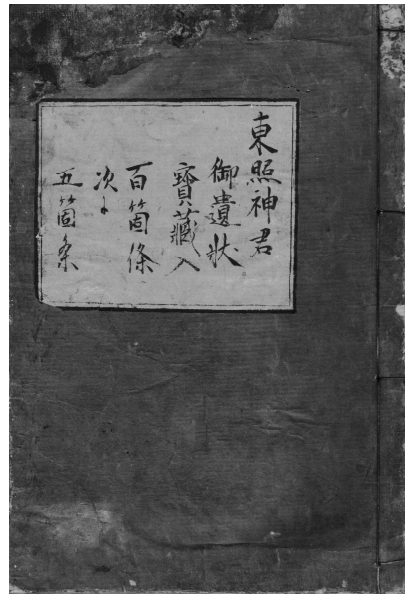 東照神君
御遺状
寳蔵入
百箇條
次ニ
五箇条